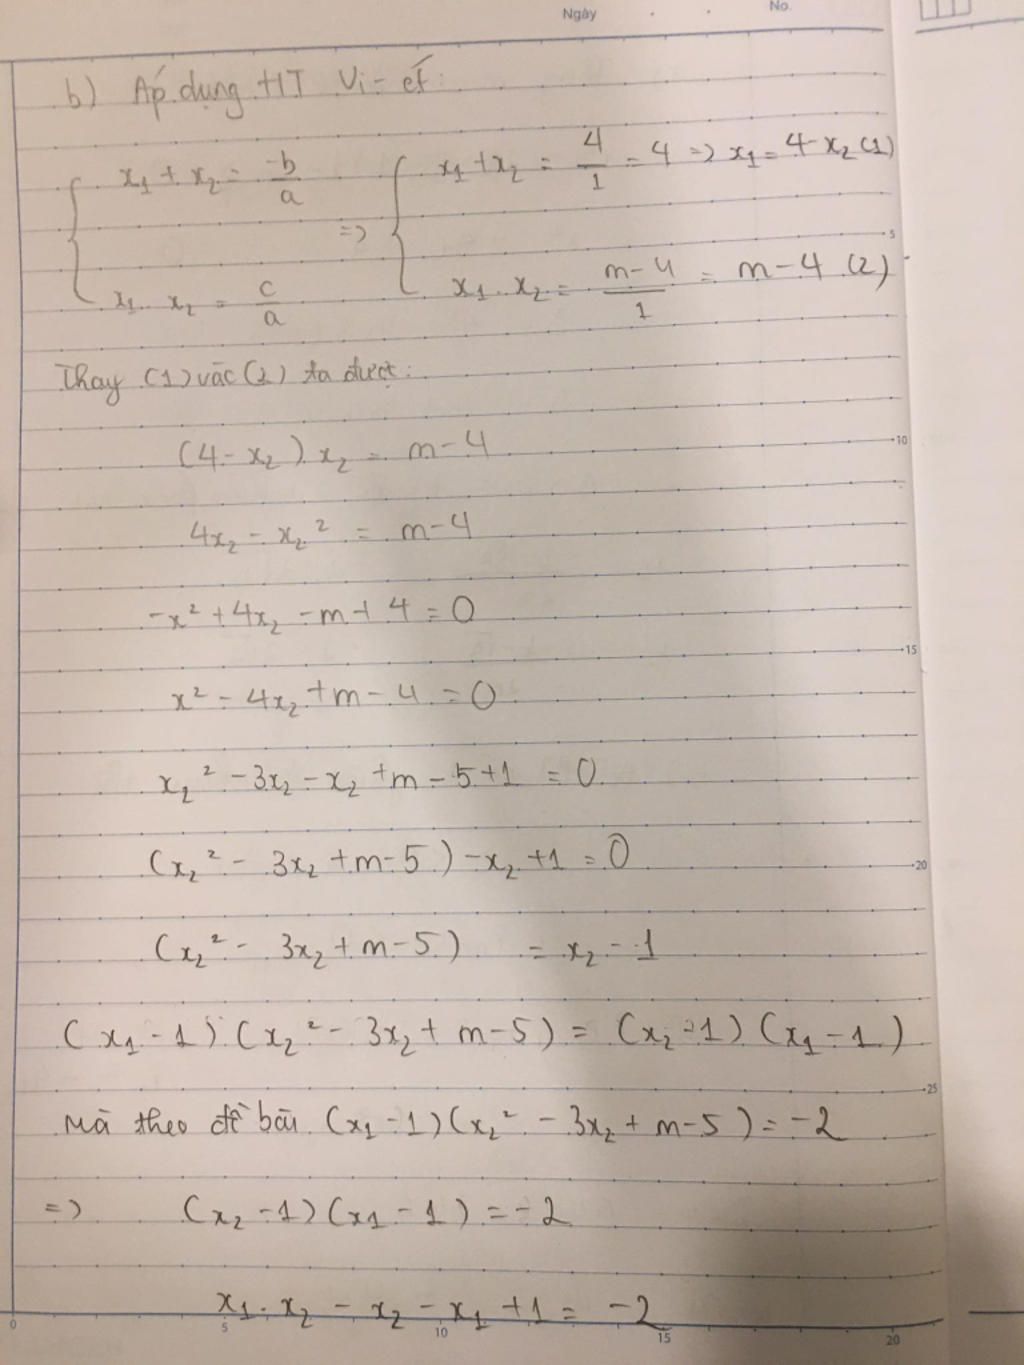 Ngày No.
b) Áp dụng HT Vi-ét:
x₁ + x₂ = -b/a => x₁ + x₂ = 4/1 = 4 => x₁ = 4-x₂ (1)
x₁ . x₂ = c/a x₁ . x₂ = m-4/1 = m-4 (2)
5
Thay (1) vào (2) ta được:
(4-x₂) x₂ = m-4
10
4x₂ - x₂² = m-4
-x² + 4x₂ - m + 4 = 0
15
x² - 4x₂ + m - 4 = 0
x₂² - 3x₂ - x₂ + m - 5 + 1 = 0
(x₂² - 3x₂ + m-5) - x₂ + 1 = 0
20
(x₂² - 3x₂ + m-5) = x₂ - 1
(x₁ - 1) (x₂² - 3x₂ + m-5) = (x₂ - 1) (x₁ - 1)
25
Mà theo đề bài (x₁ - 1)(x₂² - 3x₂ + m-5) = -2
=> (x₂ - 1)(x₁ - 1) = -2
x₁ . x₂ - x₂ - x₁ + 1 = -2
0 5 10 15 20